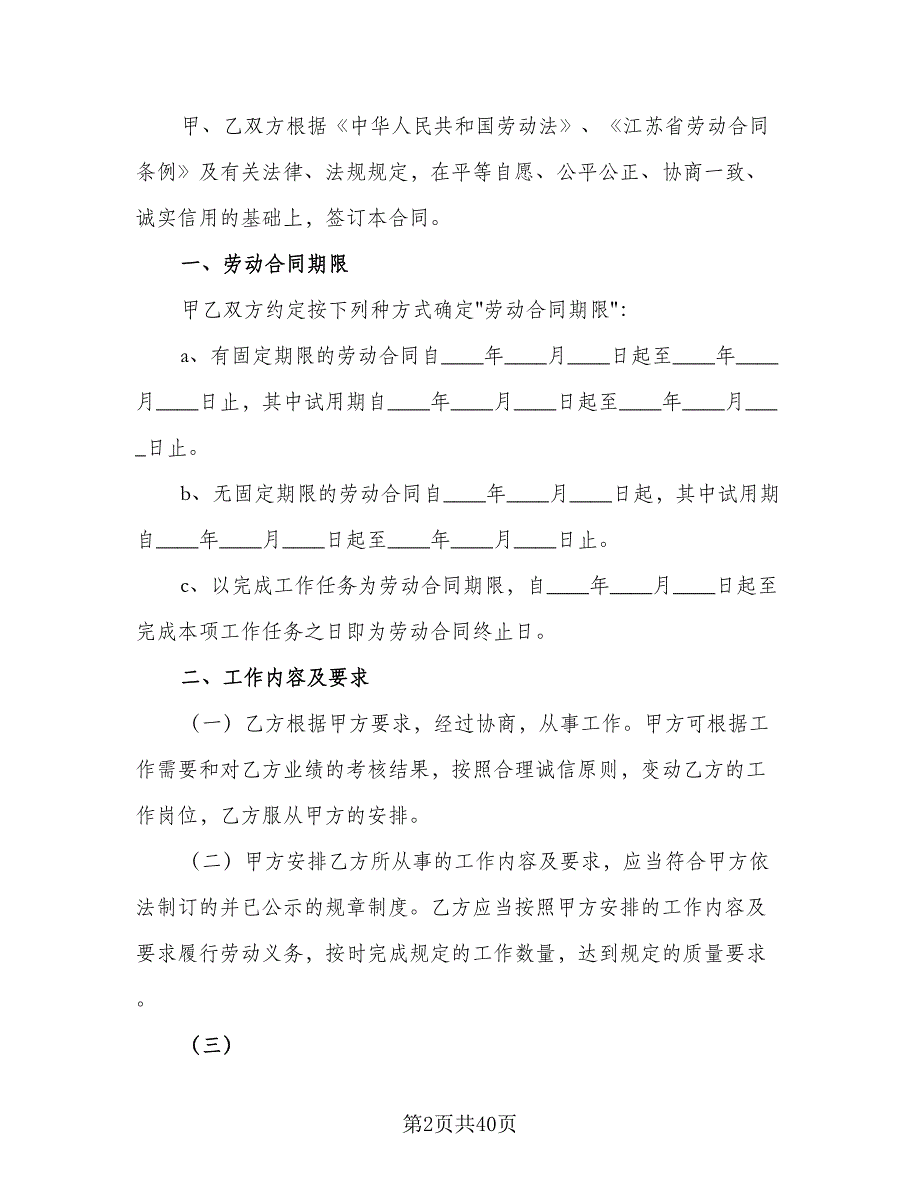 甲、乙双方根据《中华人民共和国劳动法》、《江苏省劳动合同
条例》及有关法律、法规规定，在平等自愿、公平公正、协商一致、
诚实信用的基础上，签订本合同。
一、劳动合同期限
甲乙双方约定按下列种方式确定"劳动合同期限"：
a、有固定期限的劳动合同自____年____月____日起至____年____
月____日止，其中试用期自____年____月____日起至____年____月___
_日止。
b、无固定期限的劳动合同自____年____月____日起，其中试用期
自____年____月____日起至____年____月____日止。
c、以完成工作任务为劳动合同期限，自____年____月____日起至
完成本项工作任务之日即为劳动合同终止日。
二、工作内容及要求
（一）乙方根据甲方要求，经过协商，从事工作。甲方可根据工
作需要和对乙方业绩的考核结果，按照合理诚信原则，变动乙方的工
作岗位，乙方服从甲方的安排。
（二）甲方安排乙方所从事的工作内容及要求，应当符合甲方依
法制订的并已公示的规章制度。乙方应当按照甲方安排的工作内容及
要求履行劳动义务，按时完成规定的工作数量，达到规定的质量要求
。
（三）
第2页共40页